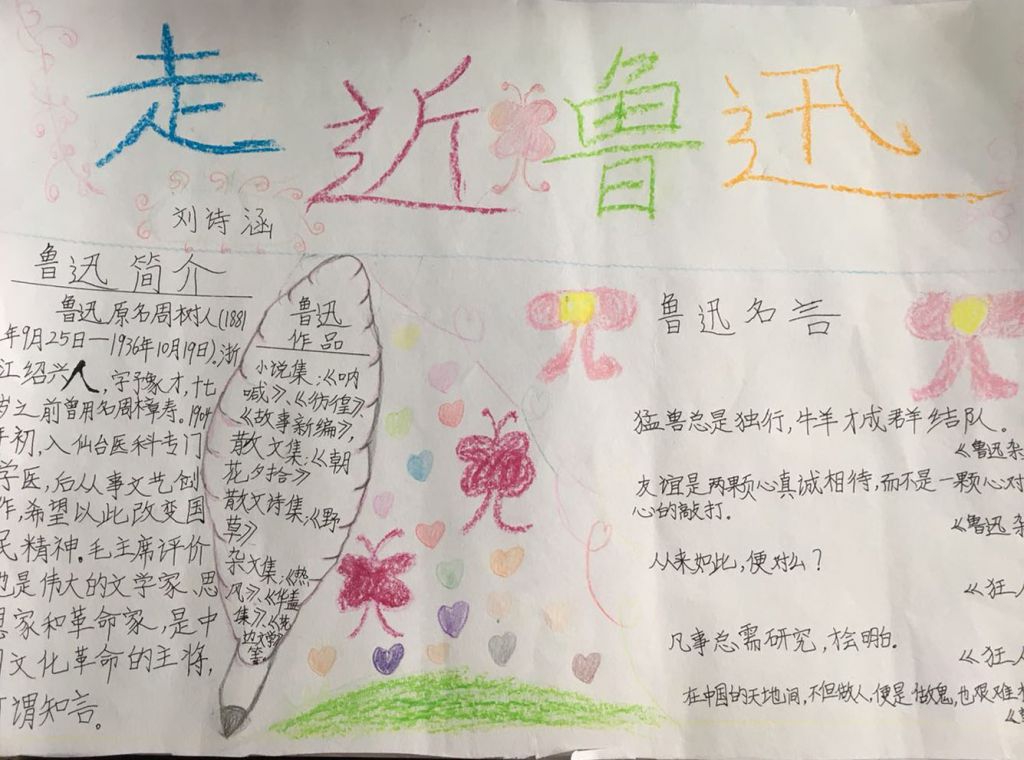 走近鲁迅
刘诗涵
鲁迅简介
鲁迅原名周树人(1881
年9月25日—1936年10月19日).浙
江绍兴人,字豫才,十七
岁之前曾用名周樟寿.1904
年初,入仙台医科专门
学医,后从事文艺创
作,希望以此改变国
民精神。毛主席评价
他是伟大的文学家、思
想家和革命家,是中
国文化革命的主将,
可谓知言。
鲁迅
作品
小说集:《呐
喊》、《彷徨》、
《故事新编》,
散文集:《朝
花夕拾》
散文诗集:《野
草》
杂文集:《热
风》、《华盖
集》、《坟
等
鲁迅名言
猛兽总是独行,牛羊才成群结队。
《鲁迅杂
友谊是两颗心真诚相待,而不是一颗心对
心的敲打.
《鲁迅杂
从来如此,便对么?
《狂人
凡事总需研究,才会明白.
《狂人
在中国的天地间,不但做人,便是做鬼,也艰难